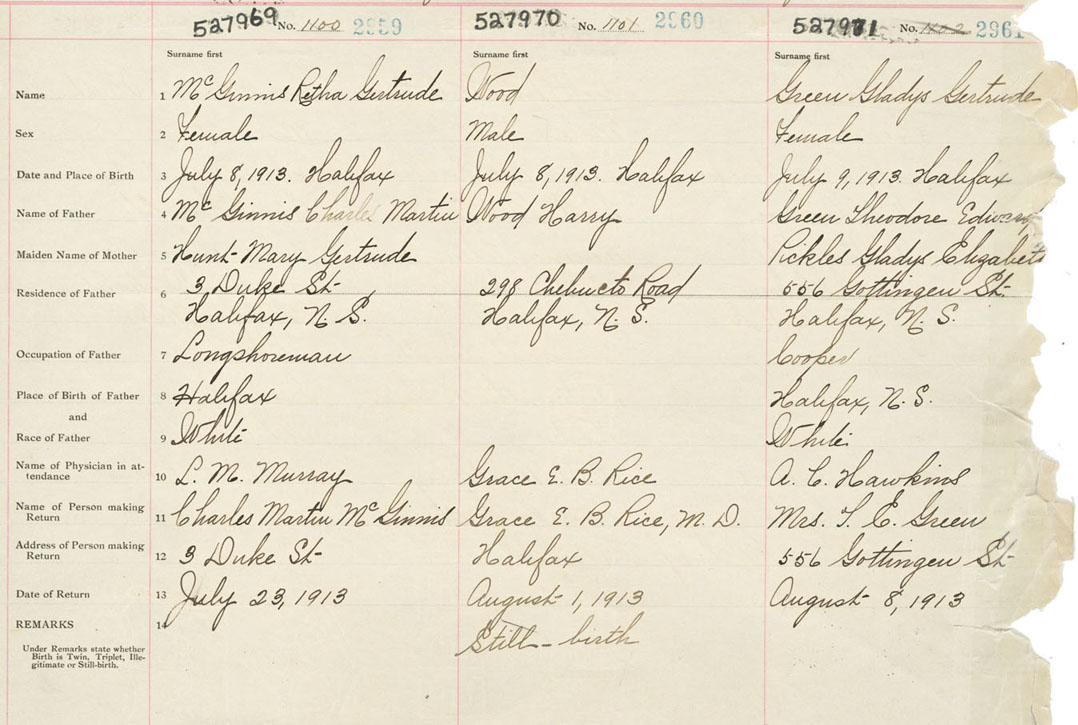 527969 No. 1100 2959 527970 No. 1101 2960 527971 No. 1102 2961
Surname first Surname first Surname first
Name 1 McGinnis Retha Gertrude Wood Green Gladys Gertrude
Sex 2 Female Male Female
Date and Place of Birth 3 July 8, 1913. Halifax July 8, 1913. Halifax July 9, 1913. Halifax
Name of Father 4 Mc Ginnis Charles Martin Wood Harry Green Theodore Edward
Maiden Name of Mother 5 Hunt Mary Gertrude Pickles Gladys Elizabeth
Residence of Father 6 3, Duke St 298 Chebucto Road 556 Gottingen St.
Halifax, N. S. Halifax, N. S. Halifax, N. S.
Occupation of Father 7 Longshoreman Cooper
Place of Birth of Father 8 Halifax Halifax, N. S.
and
Race of Father 9 White White
Name of Physician in at-
tendance 10 L. M. Murray Grace E. B. Rice A. C. Hawkins
Name of Person making
Return 11 Charles Martin McGinnis Grace E. B. Rice, M. D. Mrs. T. E. Green
Address of Person making
Return 12 3 Duke St Halifax 556 Gottingen St
Date of Return 13 July 23, 1913 August 1, 1913 August 8, 1913
REMARKS 14 Still-birth
Under Remarks state whether
Birth is Twin, Triplet, Ille-
gitimate or Still-birth.